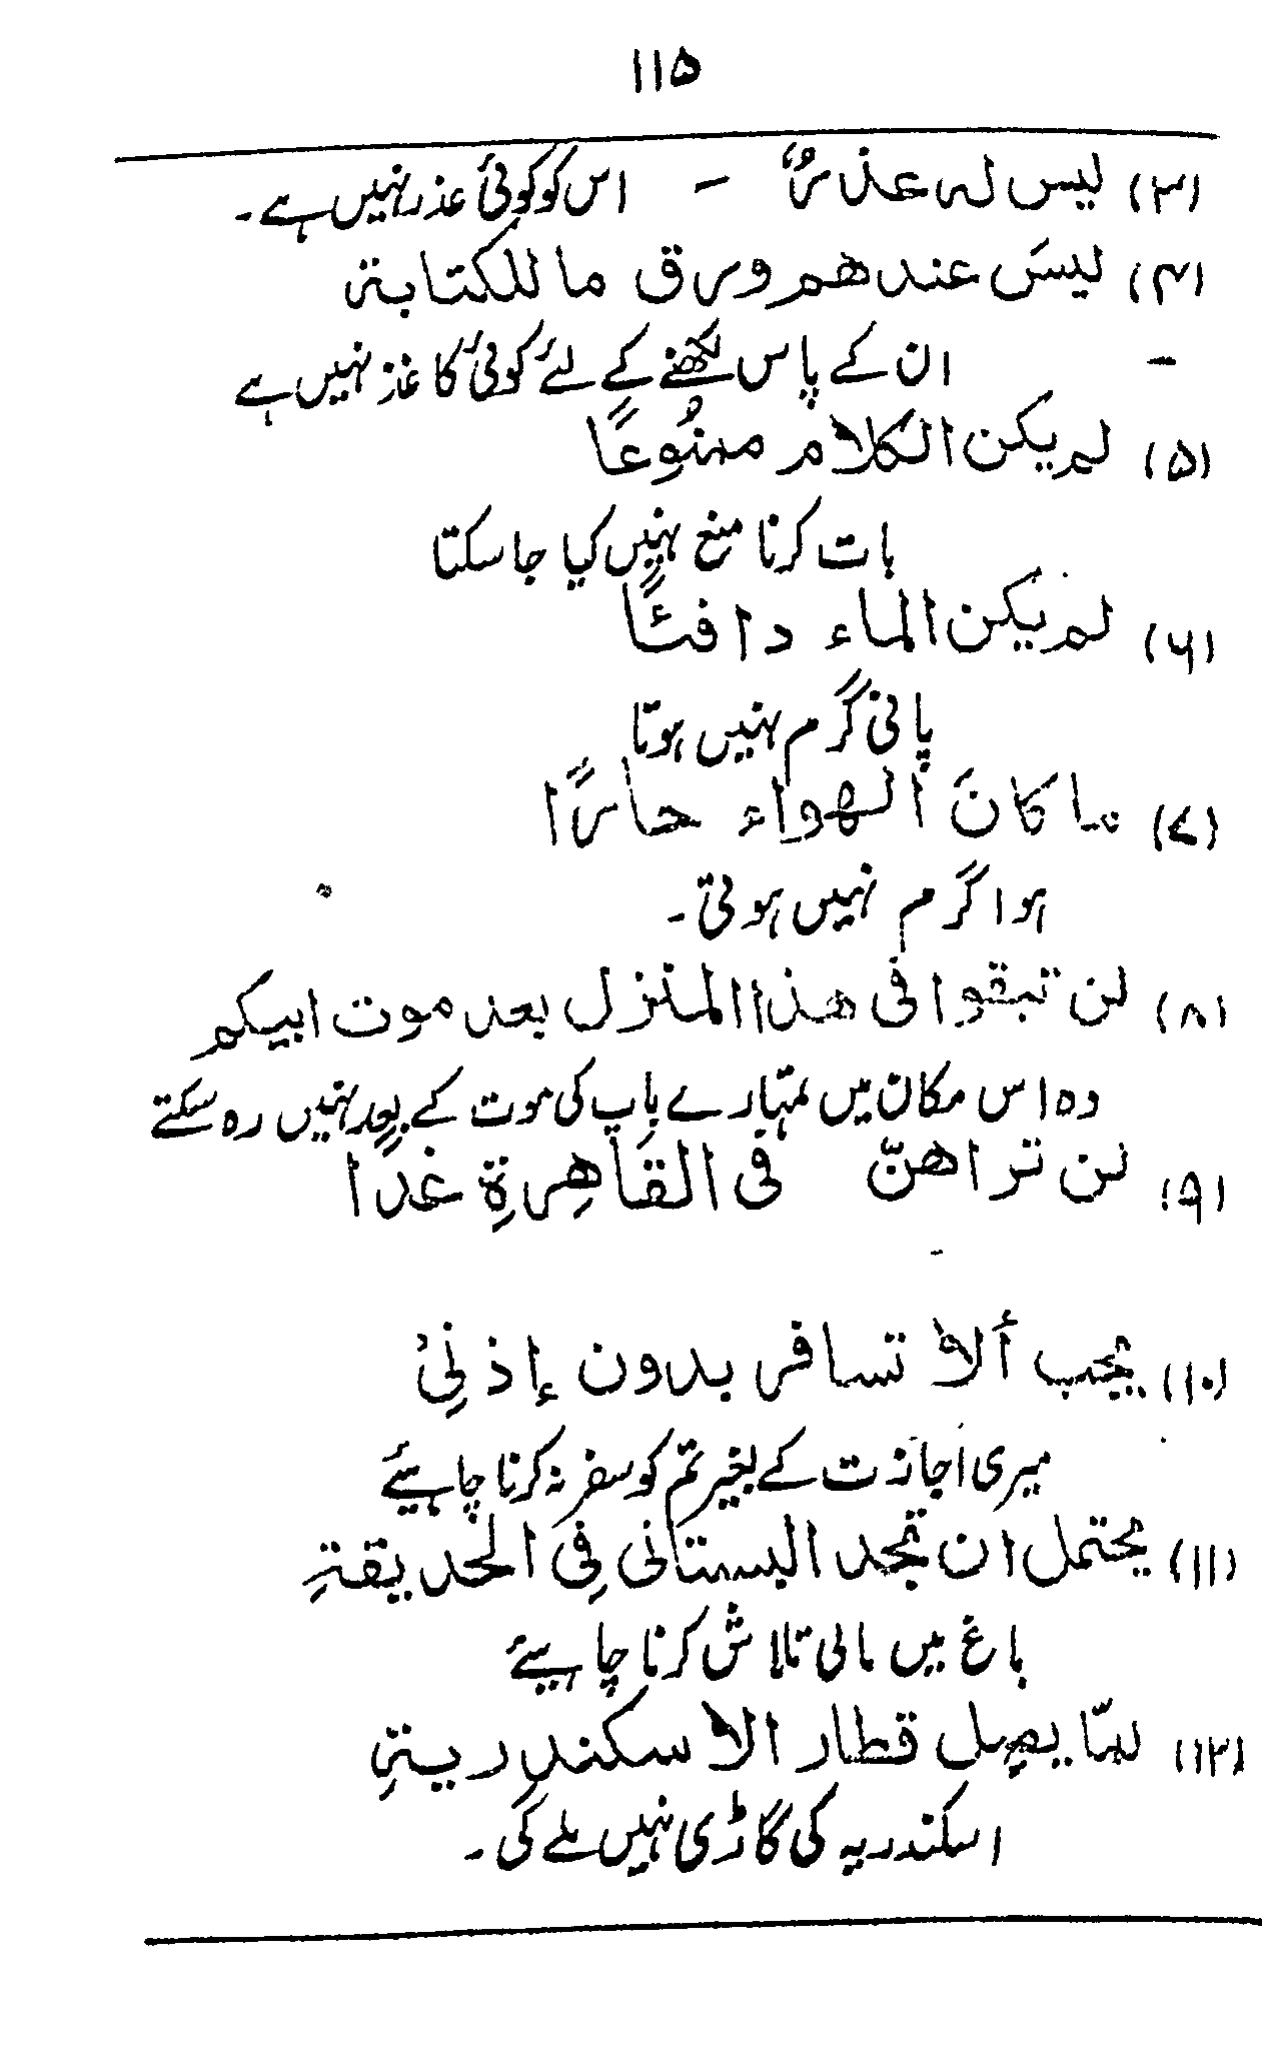 ۱۱۵
(۳) لیس له عذرٌ – اس کو کوئی عذر نہیں ہے۔
(۴) لیسَ عندهم ورق ما للکتابة
– ان کے پاس لکھنے کے لئے کوئی کاغذ نہیں ہے
(۵) لم یکن الکلام منُوعًا
بات کرنا منع نہیں کیا جا سکتا
(۶) لم یکن الماء دافئًا
پانی گرم نہیں ہوتا
(۷) ما کانَ الهواء حارًا
ہوا گرم نہیں ہوتی۔
(۸) لن تبقوا فی هذا المنزل بعد موت ابیکم
وہ اس مکان میں تمہارے باپ کی موت کے بعد نہیں رہ سکتے
(۹) لن تراهنّ فی القاهِرةِ غدًا
(۱۰) یجب ألا تسافر بدون إذنِی
میری اجازت کے بغیر تم کو سفر نہ کرنا چاہیئے
(۱۱) یحتمل ان تجد البستانی فِی الحدیقةِ
باغ میں مالی تلاش کرنا چاہیئے
(۱۲) لمّا یصِل قطار الاسکندریةِ
اسکندریہ کی گاڑی نہیں ملے گی۔